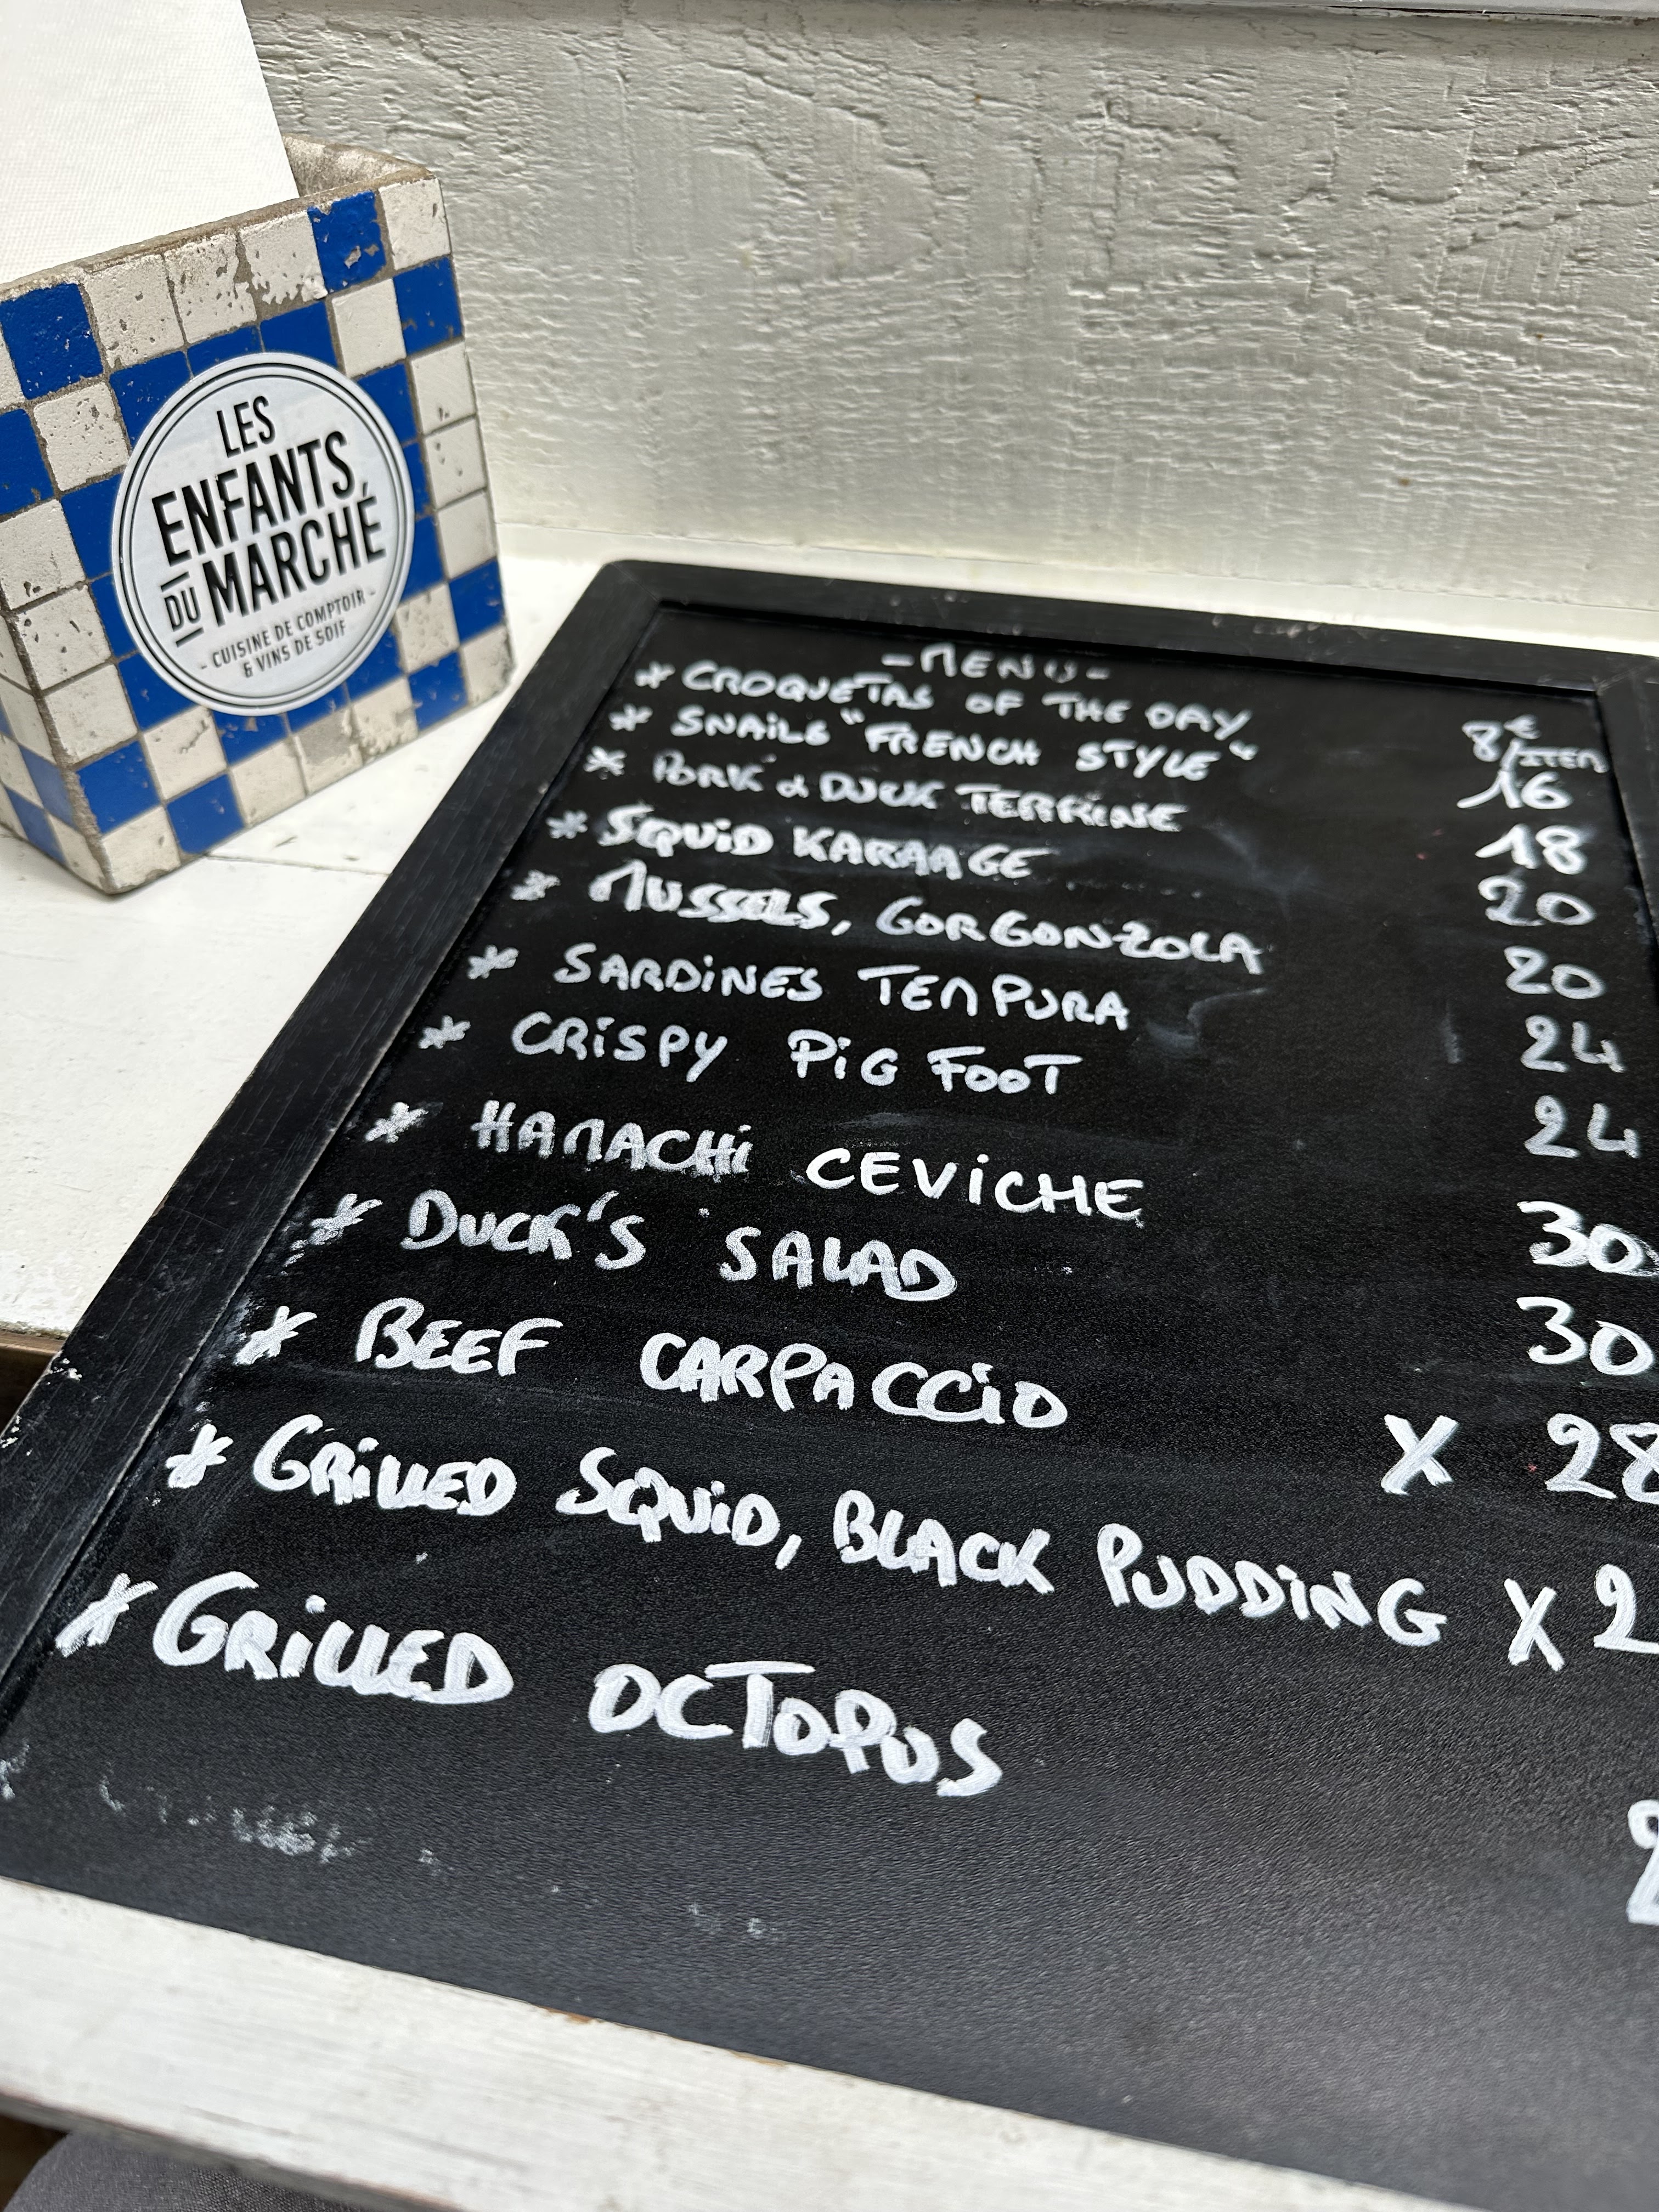 LES
ENFANTS
DU MARCHÉ
- CUISINE DE COMPTOIR -
& VINS DE SOIF
- MENU -
* CROQUETAS OF THE DAY 8€/ITEM
* SNAILS "FRENCH STYLE" 16
* PORK & DUCK TERRINE 18
* SQUID KARAAGE 20
* MUSSELS, GORGONZOLA 20
* SARDINES TEMPURA 24
* CRISPY PIG FOOT 24
* HAMACHI CEVICHE 30
* DUCK'S SALAD 30
* BEEF CARPACCIO X 28
* GRILLED SQUID, BLACK PUDDING X 2
* GRILLED OCTOPUS